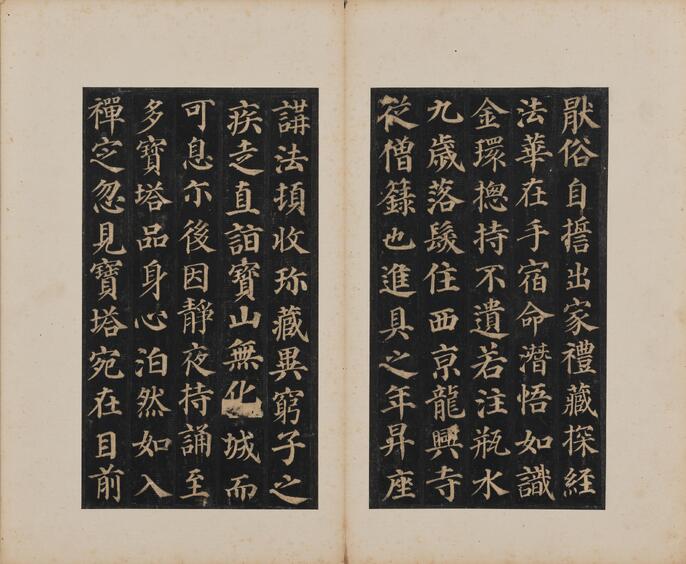 厭俗自誓出家禮藏探經
法華在手宿命潛悟如識
金環揔持不遺若注瓶水
九歲落髮住西京龍興寺
從僧籙也進具之年昇座
講法頓收珎藏異窮子之
疾走直詣寳山無化城而
可息尒後因靜夜持誦至
多寶塔品身心泊然如入
禪定忽見寶塔宛在目前